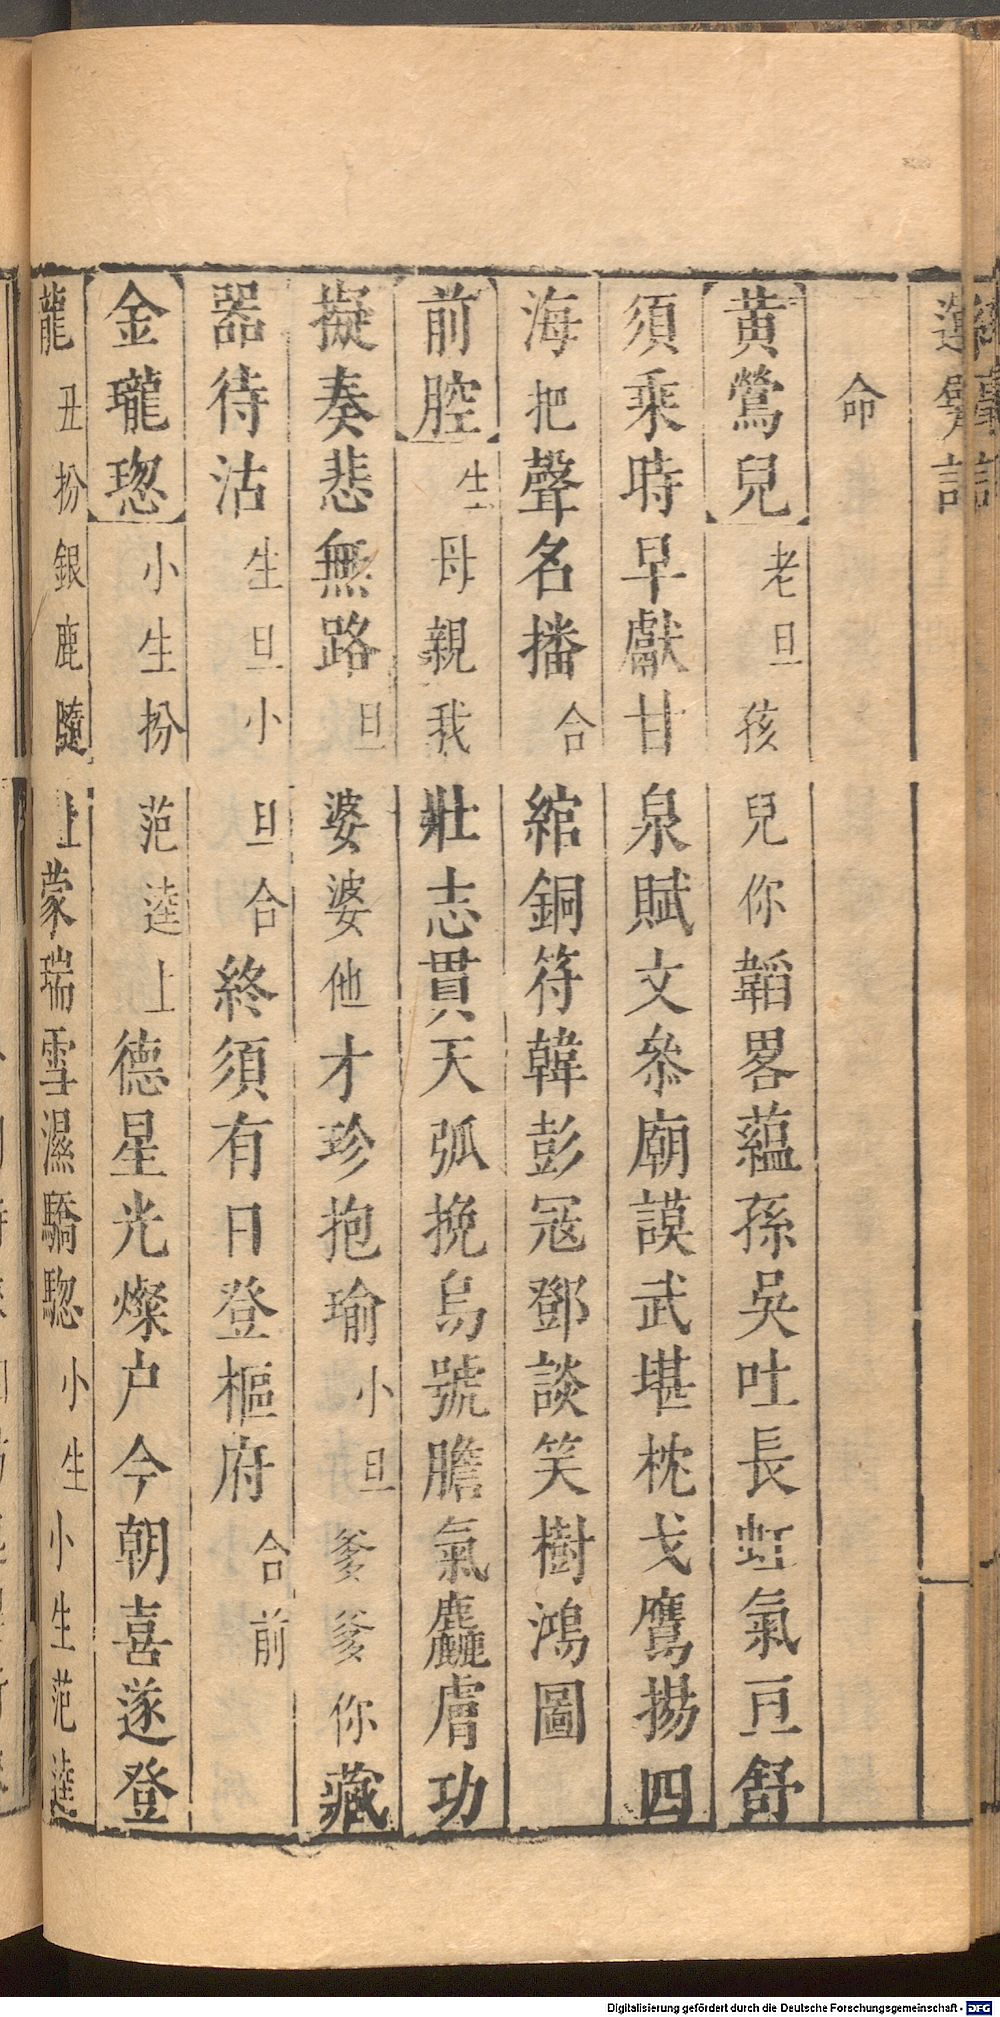 命
黄鶯兒老旦孩兒你韜畧蘊孫吳吐長虹氣亘舒
須乘時早獻甘泉賦文叅廟謨武堪枕戈鷹揚四
海把聲名播合綰銅符韓彭冦鄧談笑樹鴻圖
前腔生母親我壯志貫天弧挽烏號膽氣麤膚功
擬奏悲無路旦婆婆他才珍抱瑜小旦爹爹你藏
器待沽生旦小旦合終須有日登樞府合前
金瓏璁小生扮范逵上德星光燦户今朝喜遂登
龍丑扮銀鹿隨上蒙瑞雪濕驕騘小生小生范逵
Digitalisierung gefördert durch die Deutsche Forschungsgemeinschaft - DFG